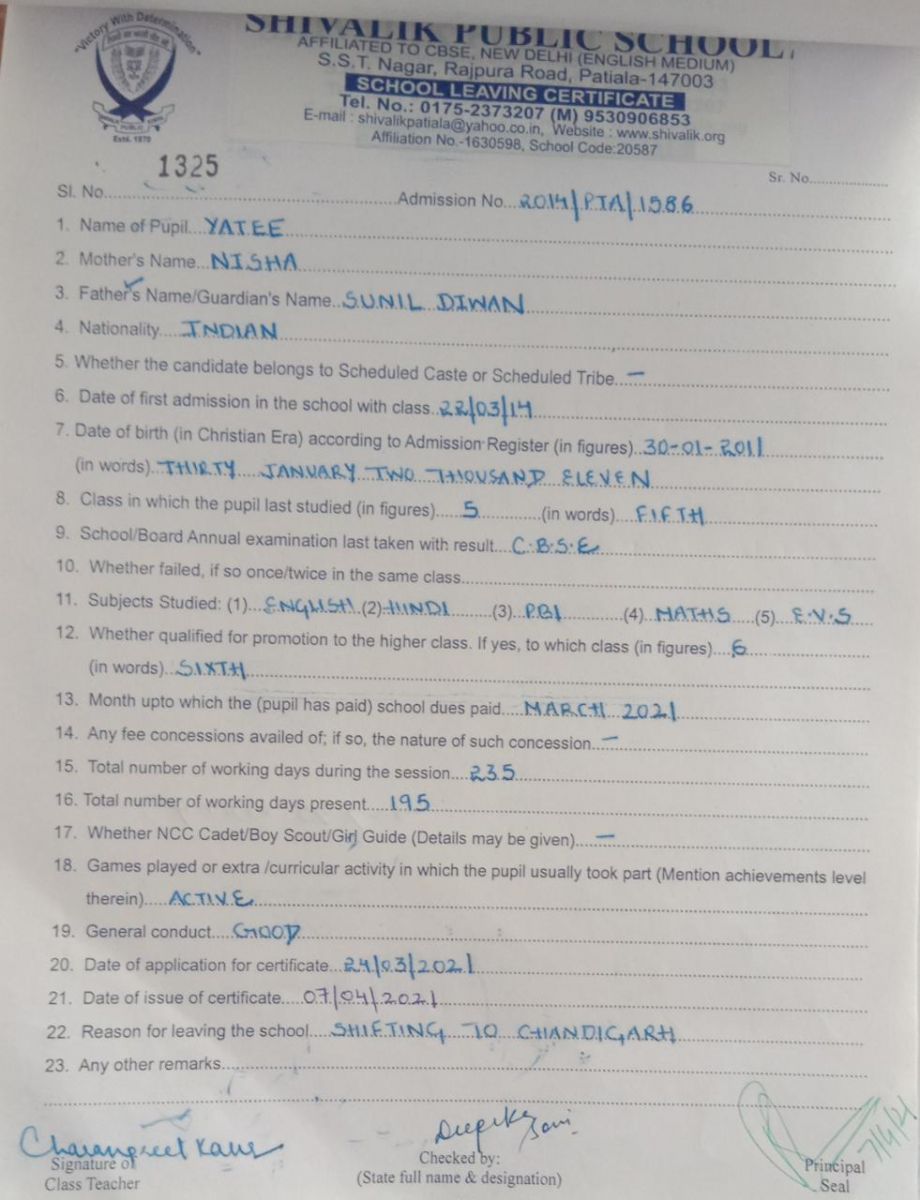 "Victory With Determination"
SHIVALIK PUBLIC SCHOOL
AFFILIATED TO CBSE, NEW DELHI (ENGLISH MEDIUM)
S.S.T. Nagar, Rajpura Road, Patiala-147003
SCHOOL LEAVING CERTIFICATE
Tel. No.: 0175-2373207 (M) 9530906853
E-mail : shivalikpatiala@yahoo.co.in, Website : www.shivalik.org
Affiliation No.-1630598, School Code:20587
PUBLIC
Estd. 1970
1325
Sr. No.
Sl. No. Admission No. 2014/PTA/1586
1. Name of Pupil YATEE
2. Mother's Name NISHA
3. Father's Name/Guardian's Name SUNIL DIWAN
4. Nationality INDIAN
5. Whether the candidate belongs to Scheduled Caste or Scheduled Tribe. –
6. Date of first admission in the school with class 22/03/14
7. Date of birth (in Christian Era) according to Admission Register (in figures) 30-01-2011
(in words) THIRTY JANUARY TWO THOUSAND ELEVEN
8. Class in which the pupil last studied (in figures) 5 (in words) FIFTH
9. School/Board Annual examination last taken with result C.B.S.E
10. Whether failed, if so once/twice in the same class
11. Subjects Studied: (1) ENGLISH (2) HINDI (3) PBI (4) MATHS (5) E.V.S
12. Whether qualified for promotion to the higher class. If yes, to which class (in figures) 6
(in words) SIXTH
13. Month upto which the (pupil has paid) school dues paid MARCH 2021
14. Any fee concessions availed of; if so, the nature of such concession –
15. Total number of working days during the session 235
16. Total number of working days present 195
17. Whether NCC Cadet/Boy Scout/Girl Guide (Details may be given) –
18. Games played or extra /curricular activity in which the pupil usually took part (Mention achievements level
therein) ACTIVE
19. General conduct GOOD
20. Date of application for certificate 24/03/2021
21. Date of issue of certificate 07/04/2021
22. Reason for leaving the school SHIFTING TO CHANDIGARH
23. Any other remarks
Charanpreet Kaur
7/4/21
Signature of Checked by: Principal
Class Teacher (State full name & designation) Seal